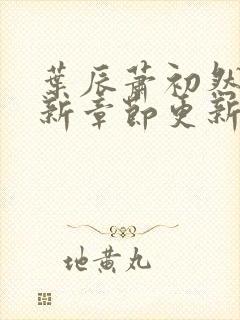 葉辰蕭初然
新章節更新
地黄丸